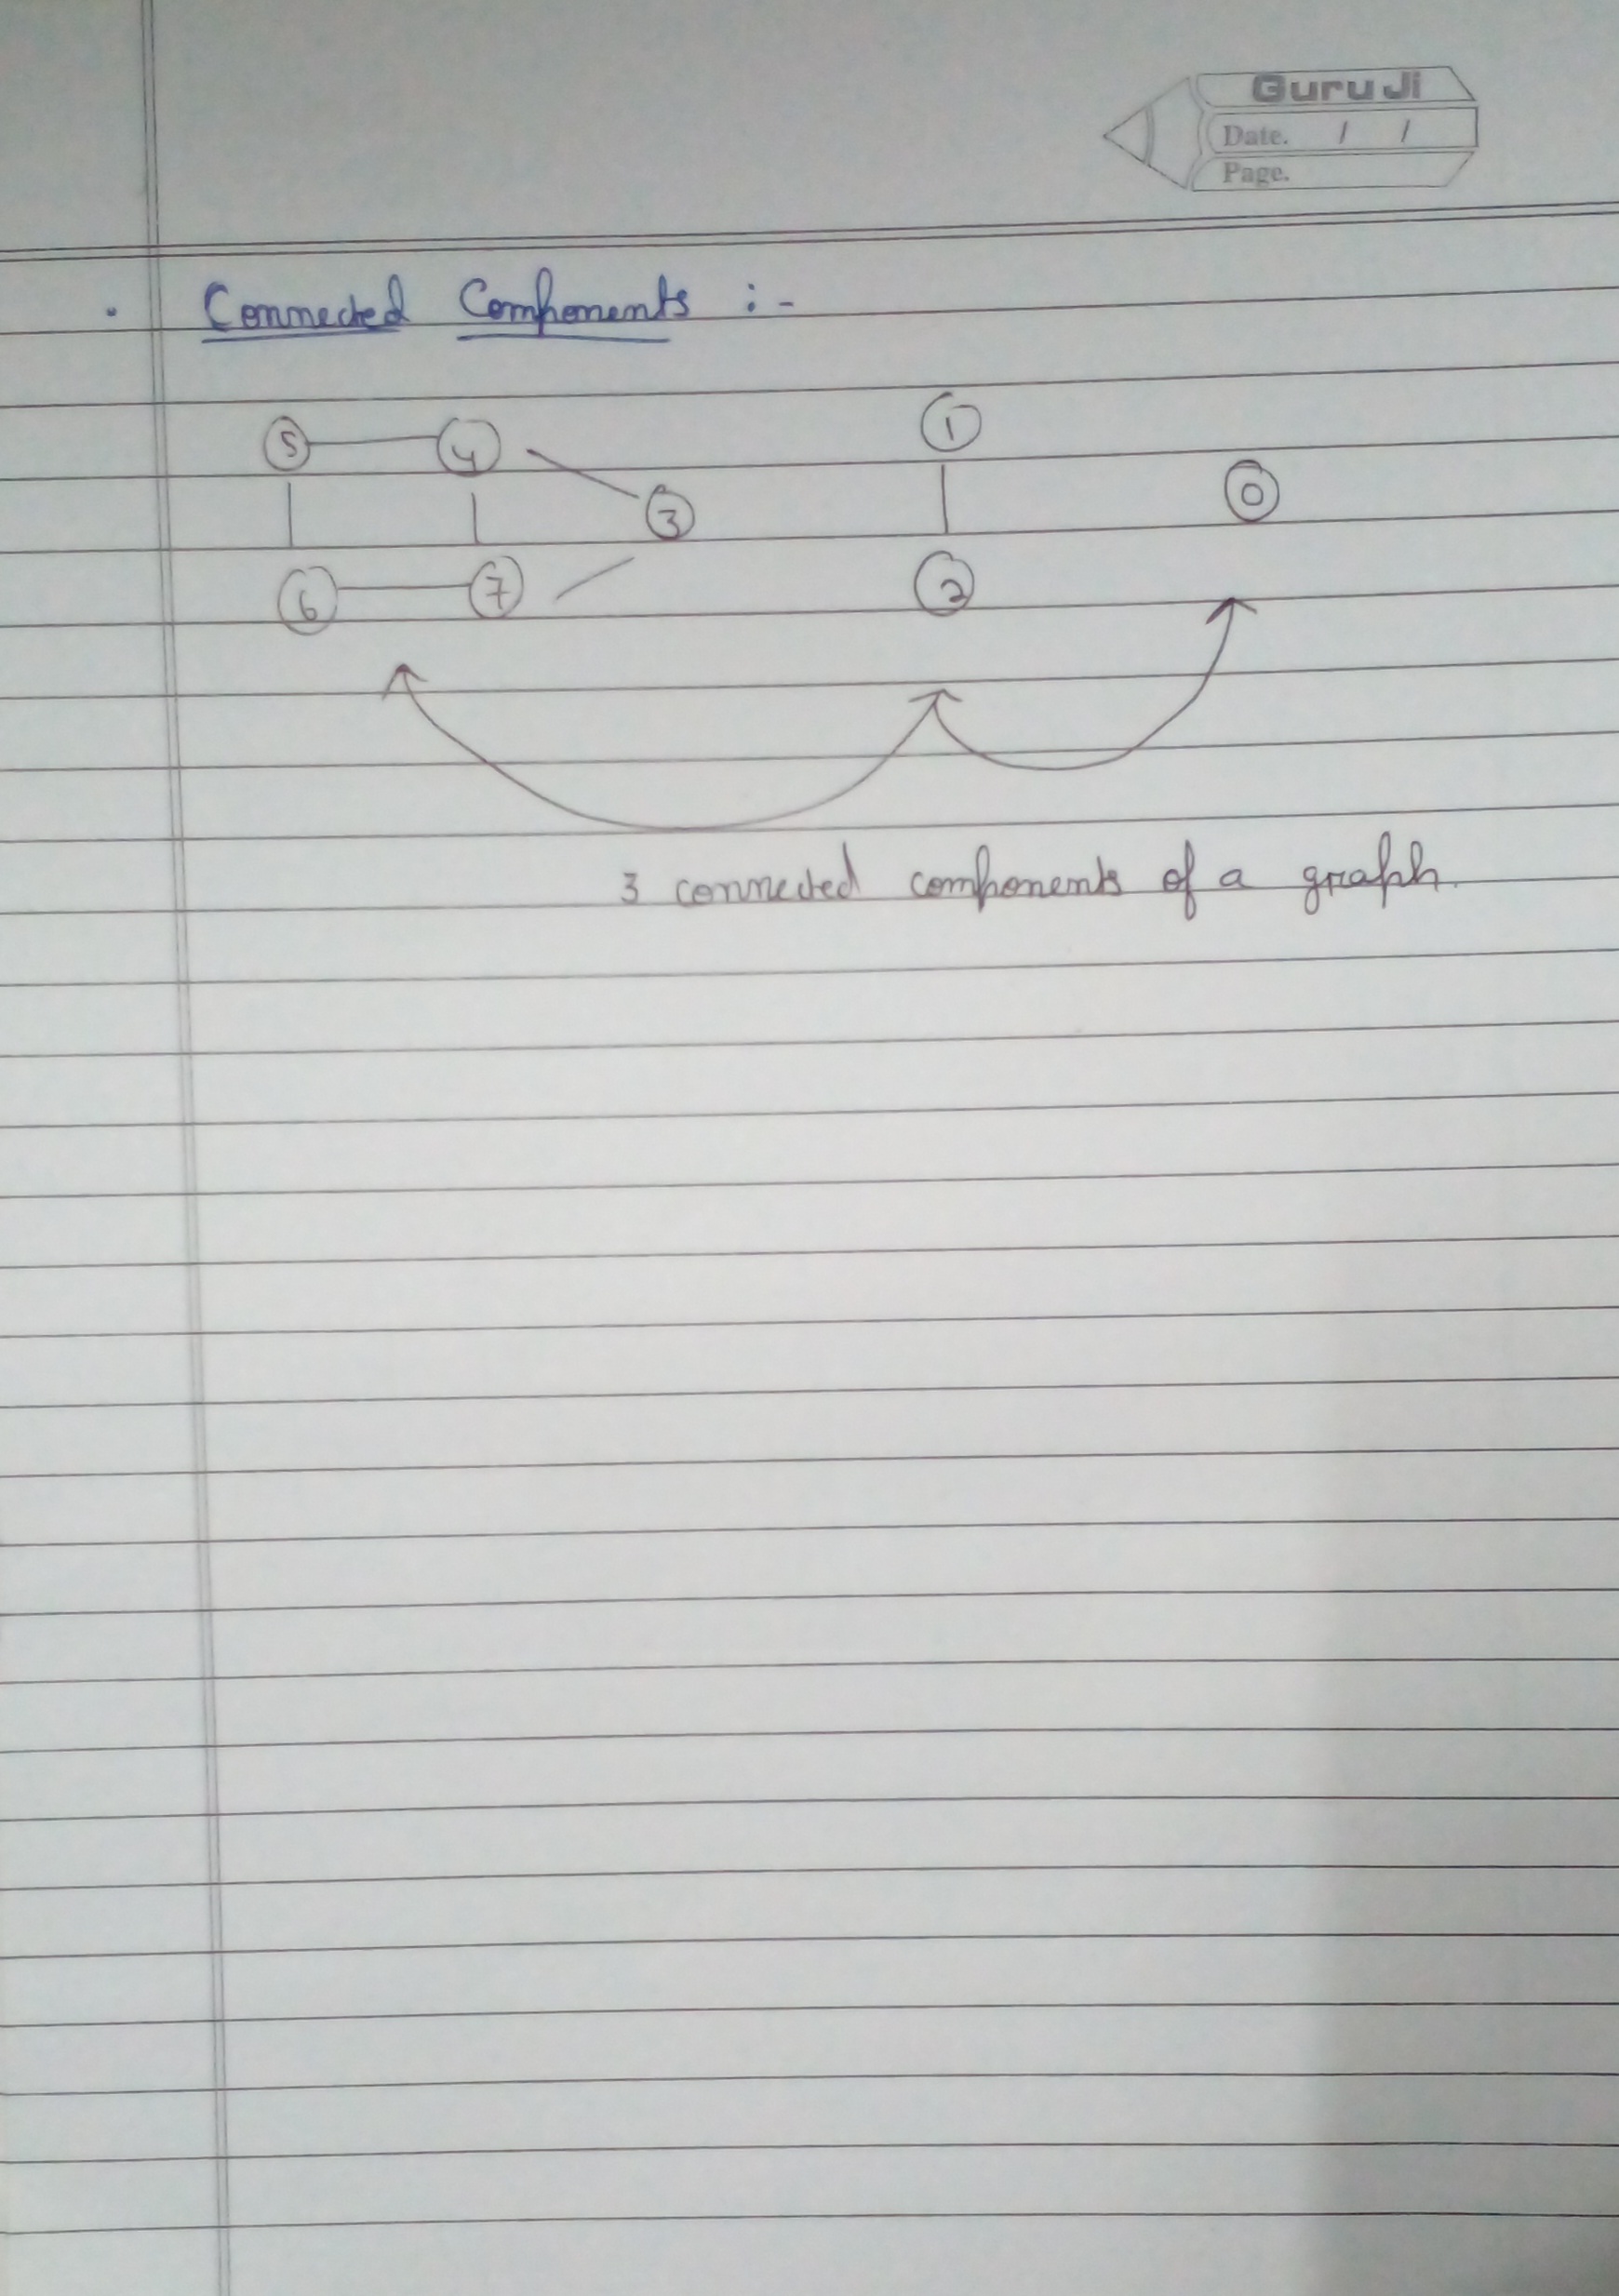 Guru Ji
Date. / /
Page.
· Connected Components :-
5 4 1
3 0
6 7 2
3 connected components of a graph.